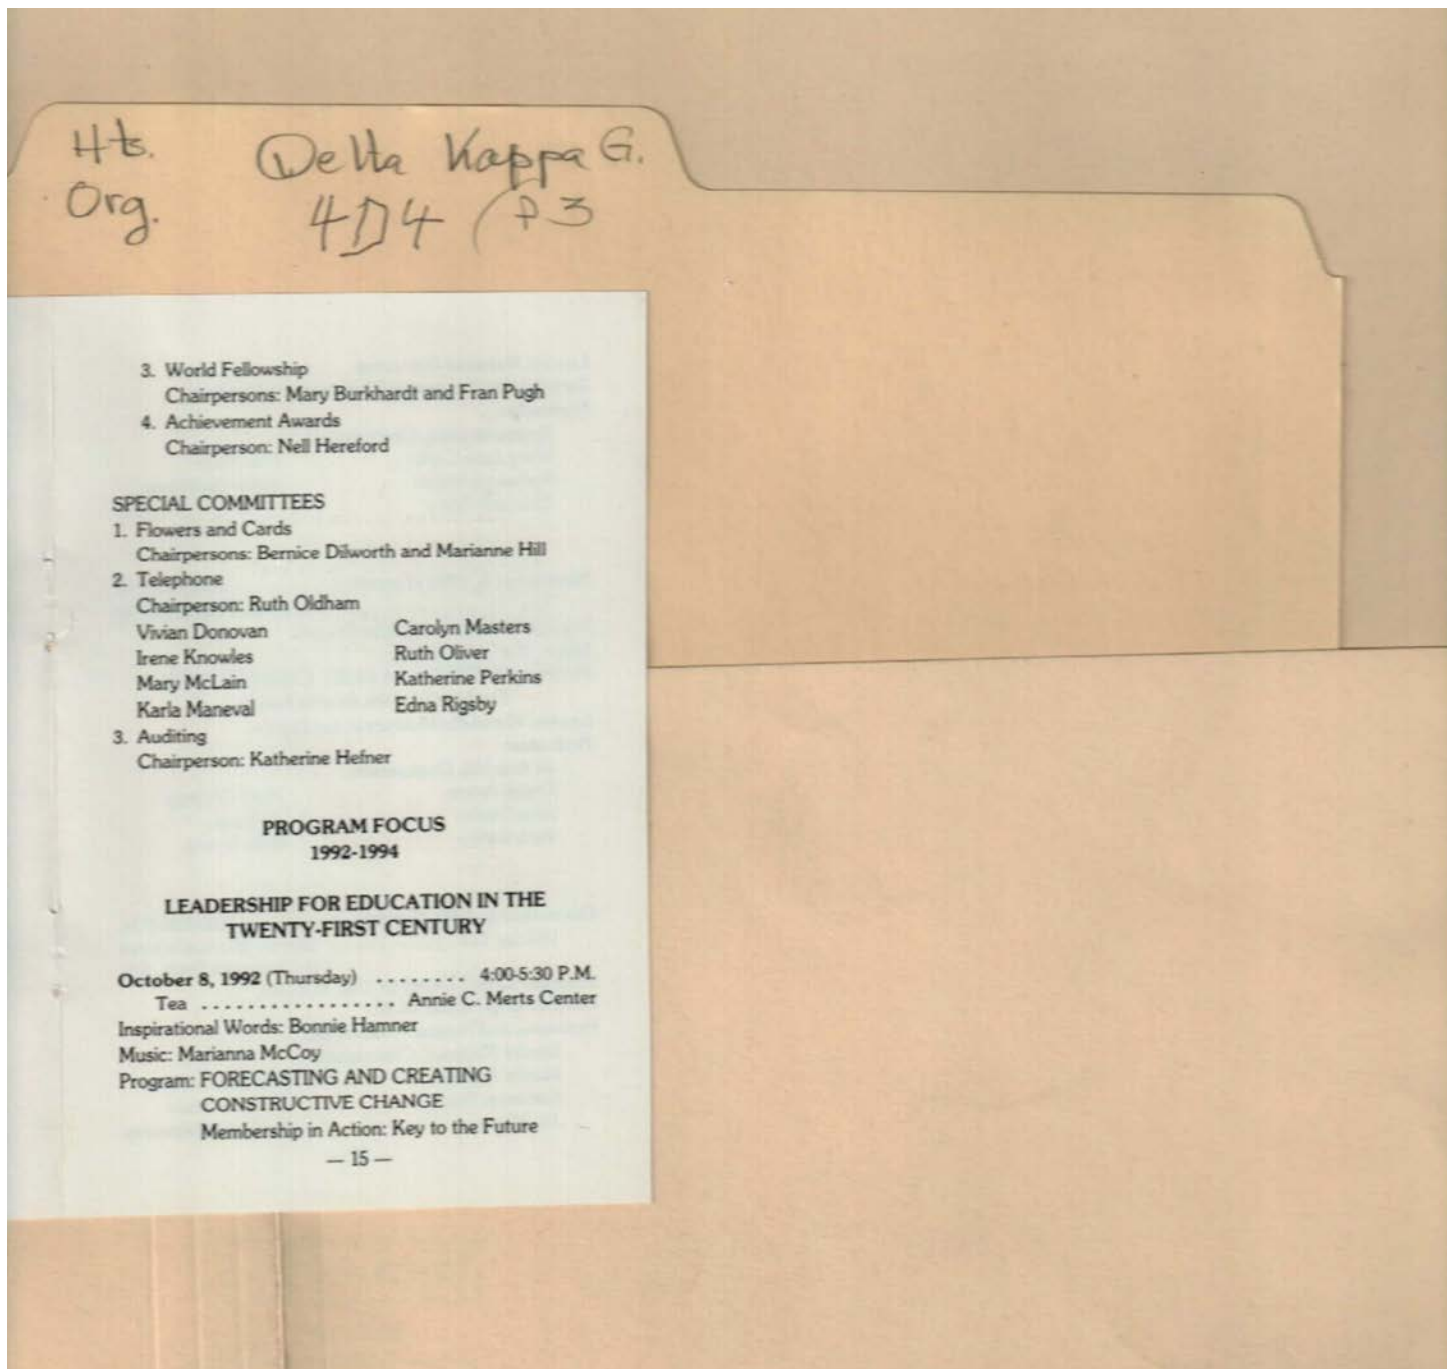 Hts. Delta Kappa G.
Org. 4D4 (P3
3. World Fellowship
Chairpersons: Mary Burkhardt and Fran Pugh
4. Achievement Awards
Chairperson: Nell Hereford
SPECIAL COMMITTEES
1. Flowers and Cards
Chairpersons: Bernice Dilworth and Marianne Hill
2. Telephone
Chairperson: Ruth Oldham
Vivian Donovan Carolyn Masters
Irene Knowles Ruth Oliver
Mary McLain Katherine Perkins
Karla Maneval Edna Rigsby
3. Auditing
Chairperson: Katherine Hefner
PROGRAM FOCUS
1992-1994
LEADERSHIP FOR EDUCATION IN THE
TWENTY-FIRST CENTURY
October 8, 1992 (Thursday) ........ 4:00-5:30 P.M.
Tea ................. Annie C. Merts Center
Inspirational Words: Bonnie Hamner
Music: Marianna McCoy
Program: FORECASTING AND CREATING
CONSTRUCTIVE CHANGE
Membership in Action: Key to the Future
— 15 —